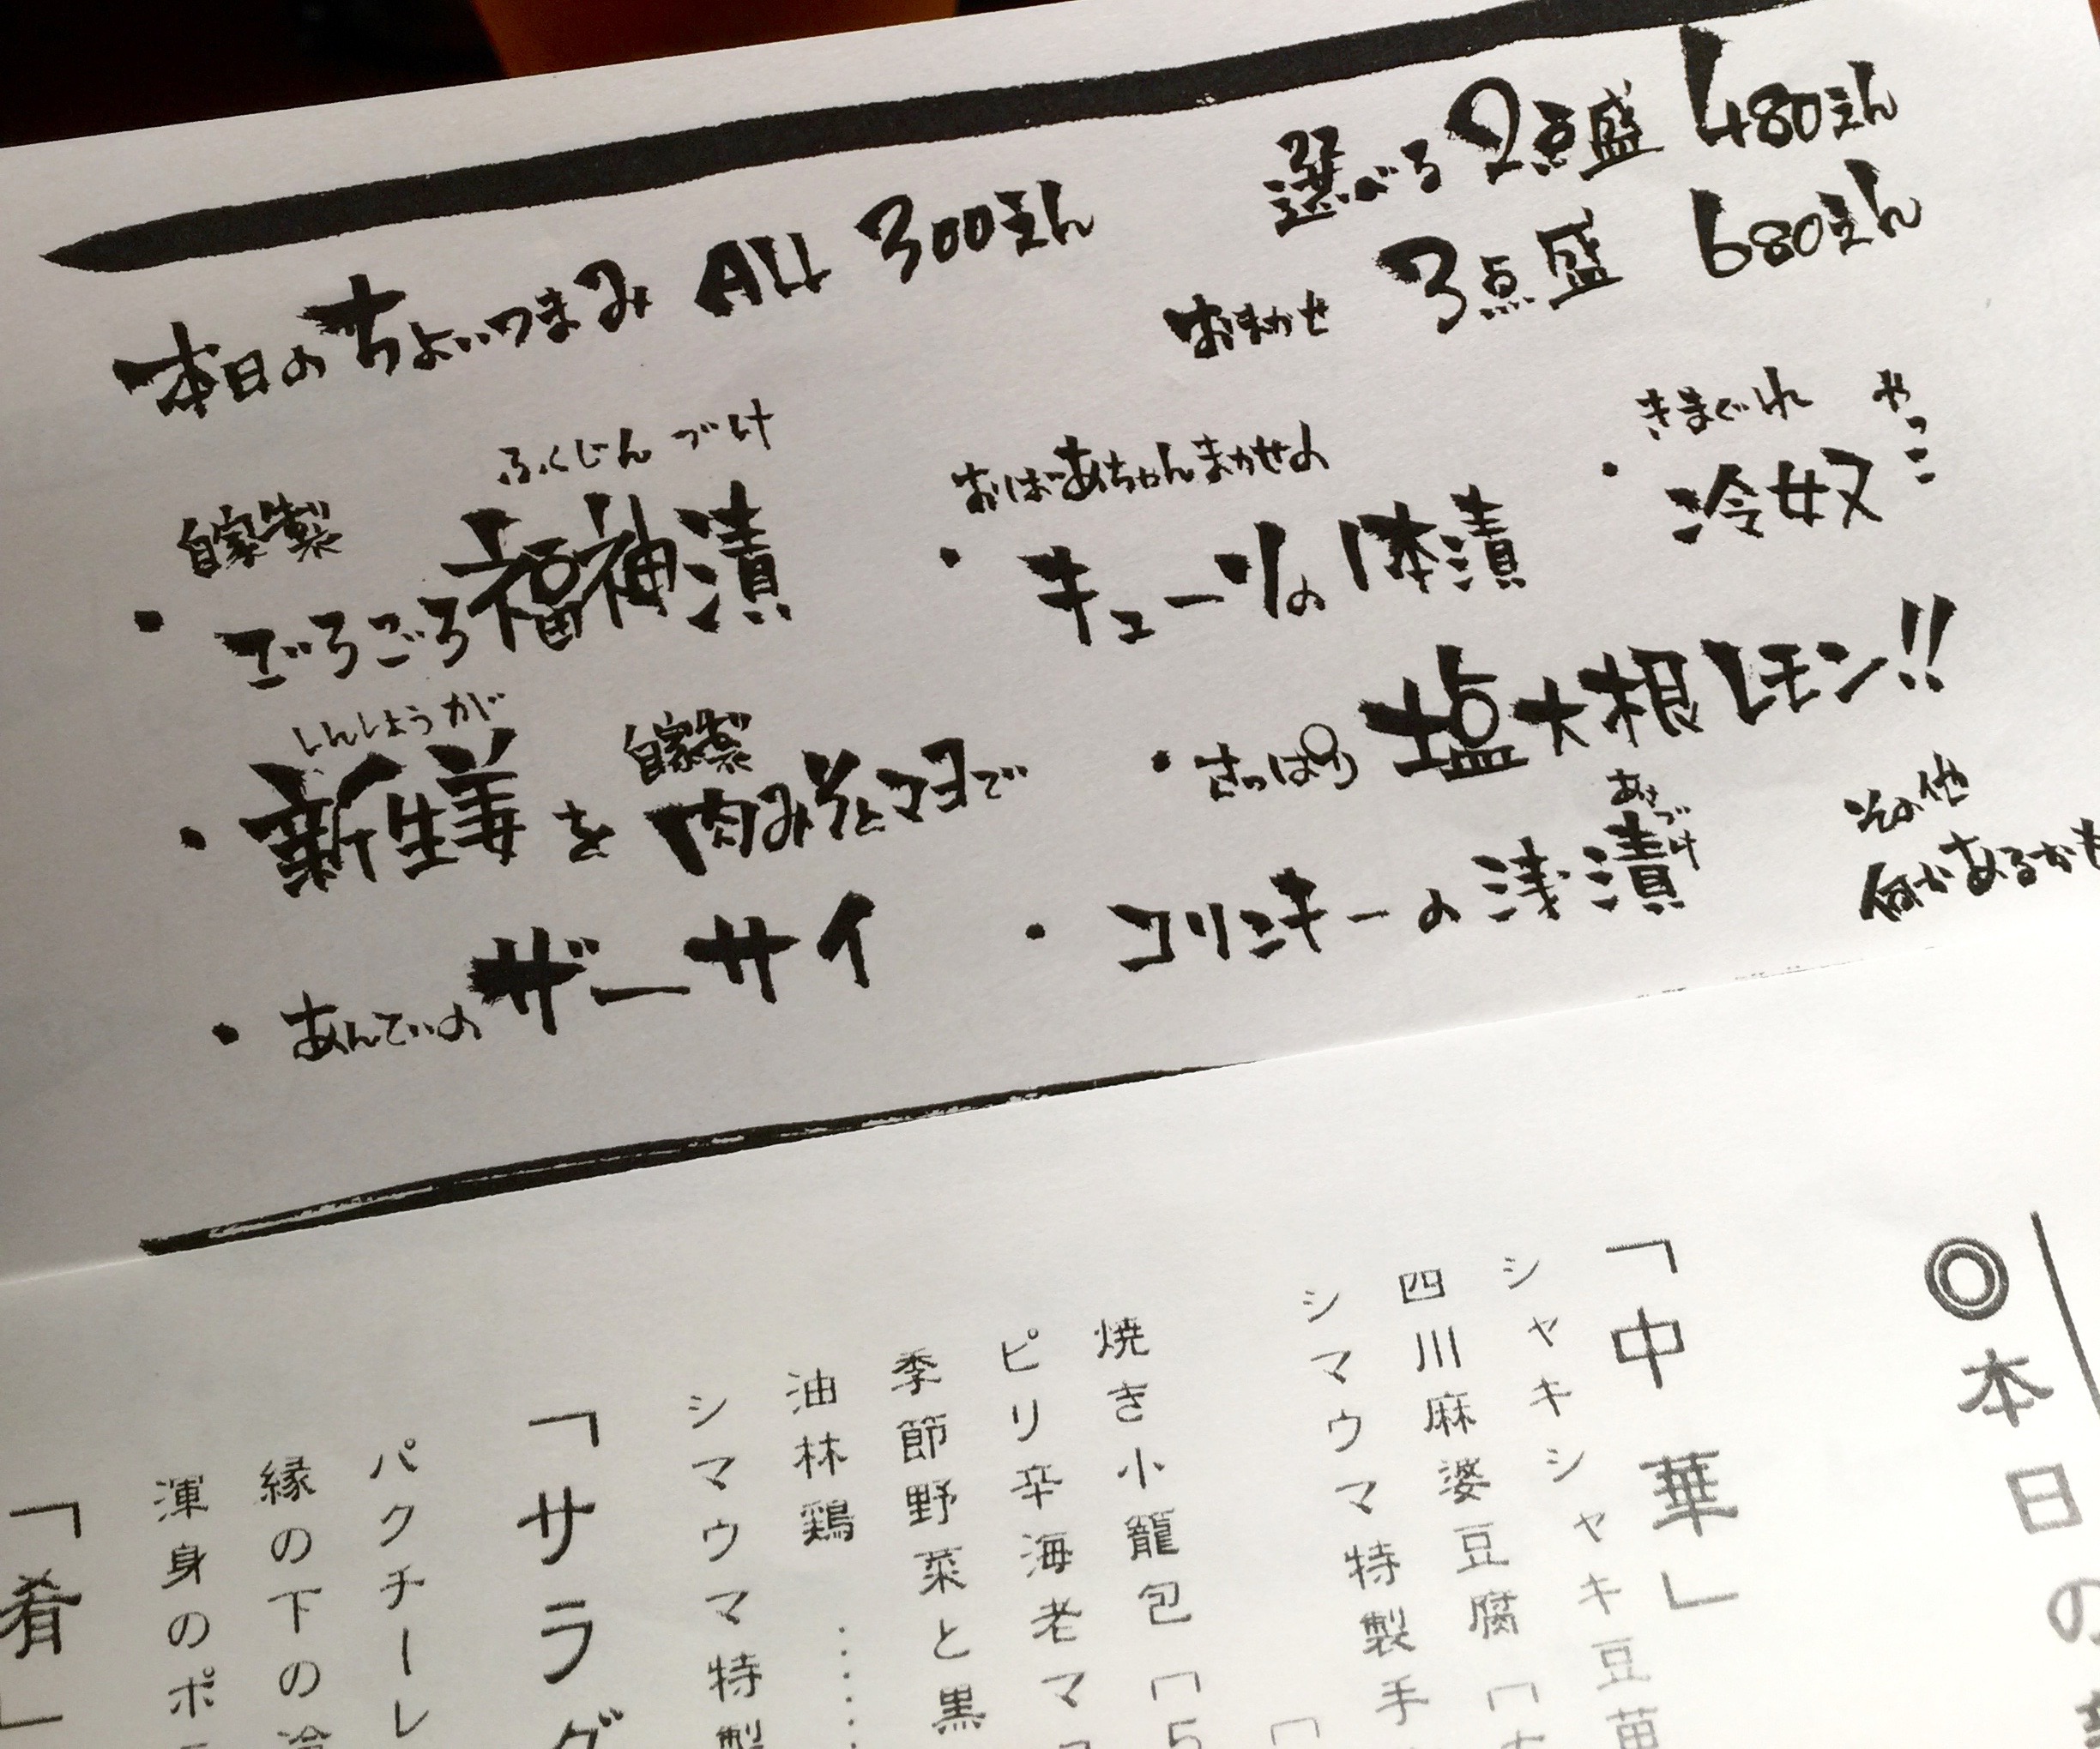 本日のちょいつまみ ALL 300えん
選べる 2点盛 480えん
おまかせ 3点盛 680えん
ふくじんづけ
・自家製 ごろごろ福神漬
おばあちゃんまかせの
・キューリの1本漬
きまぐれ やっこ
・冷奴
しんしょうが
・新生姜を自家製肉みそとマヨで
・さっぱり塩大根レモン!!
・あんでぃのザーサイ
あさづけ
・コリンキーの浅漬
その他
何かあるかも
◎本日の
「中華」
シャキシャキ豆苗
四川麻婆豆腐「
シマウマ特製手
焼き小籠包「5
ピリ辛海老マ
季節野菜と黒
油林鶏……
シマウマ特製
「サラダ
パクチーレ
縁の下の
渾身のポ
「肴」